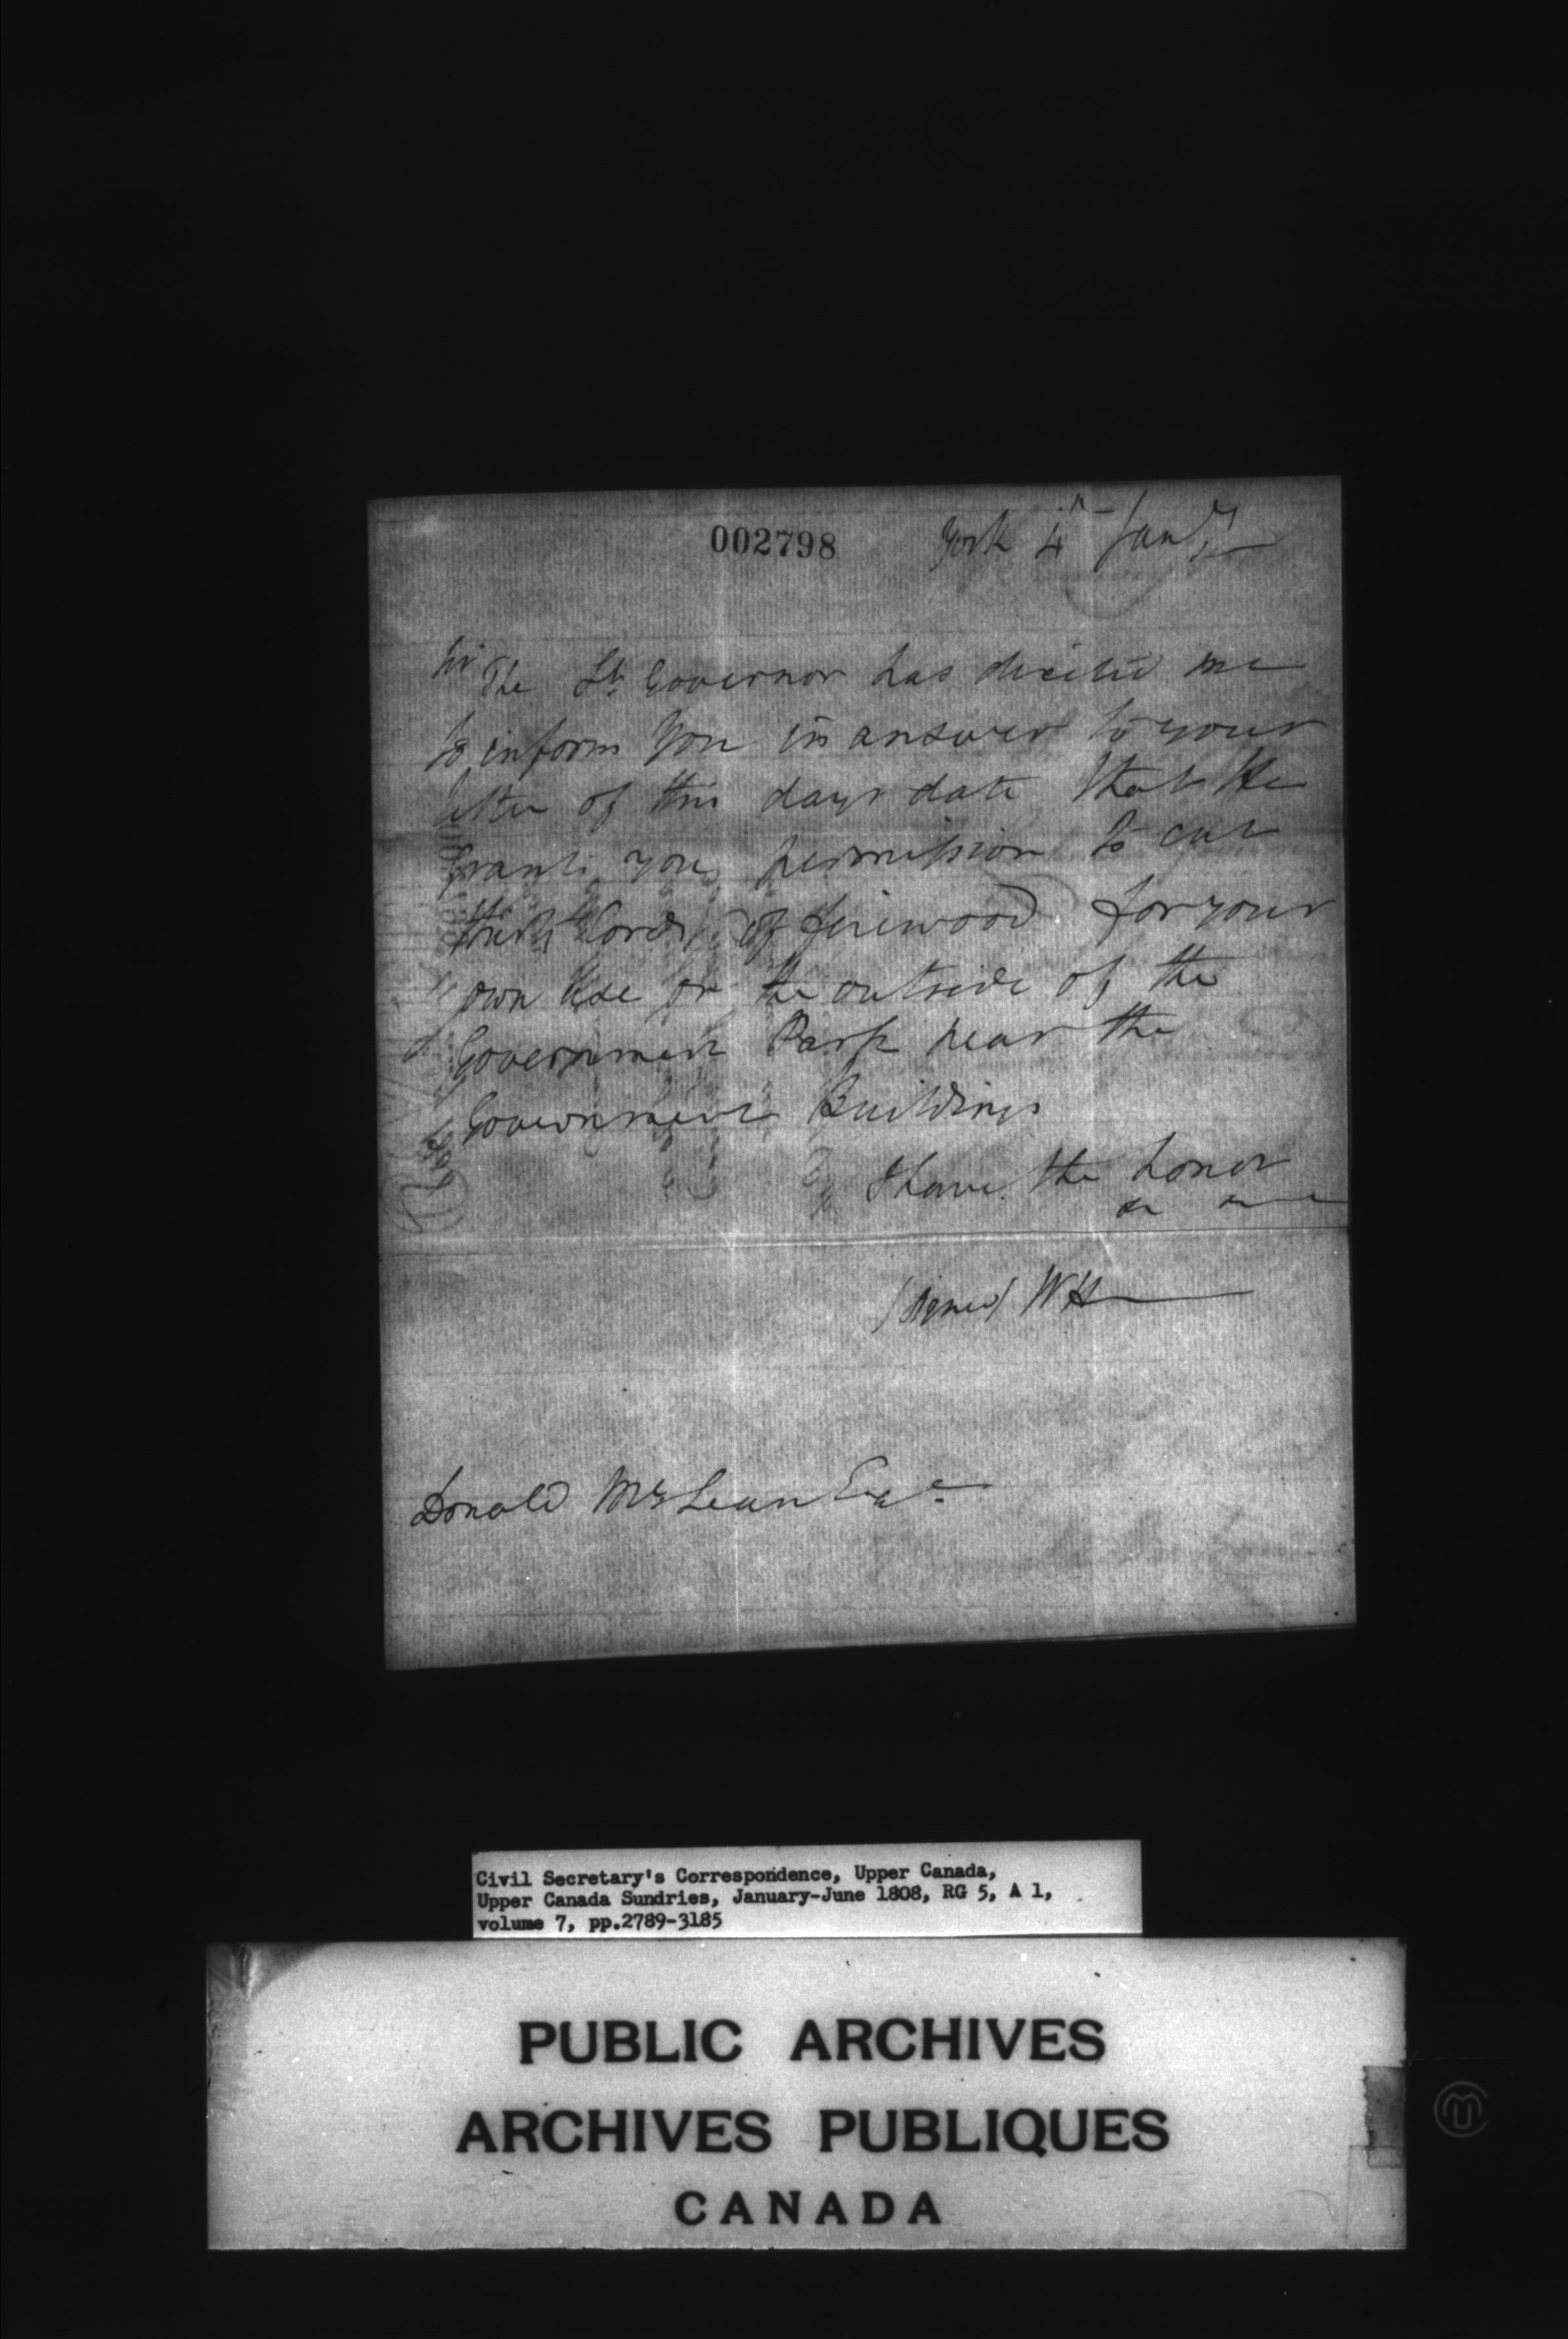 002798
York 4th Jany
Sir
The Lt Governor has directed me
to inform you in answer to your
letter of this days date that He
grants you permission to cut
thirty Cords of firewood for your
own Use on the outside of the
Government Park near the
Government Buildings
I have the honor
&c &c
(signed) WH
Donald McLean Esqre
Civil Secretary's Correspondence, Upper Canada,
Upper Canada Sundries, January-June 1808, RG 5, A 1,
volume 7, pp.2789-3185
PUBLIC ARCHIVES
ARCHIVES PUBLIQUES
CANADA